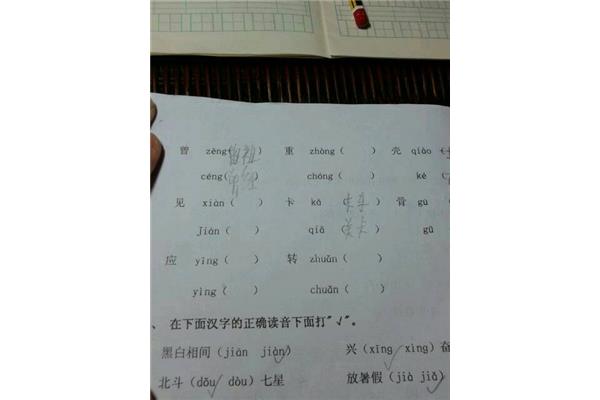 曾 zēng(曾祖) 重 zhòng( ) 壳 qiào(
céng(曾经) chóng( ) ké (
见 xiàn( ) 卡 kǎ (卡车) 骨 gū (
Jián( ) qiǎ (关卡) gǔ (
应 yīng( ) 转 zhuǎn( )
yìng( ) chuǎn( )
、在下面汉字的正确读音下面打"√"。
黑白相间(jiān jiàn√) 兴(xīng√ xìng)奋
北斗(dǒu√ dòu)七星 放暑假(jià jiǎ√)